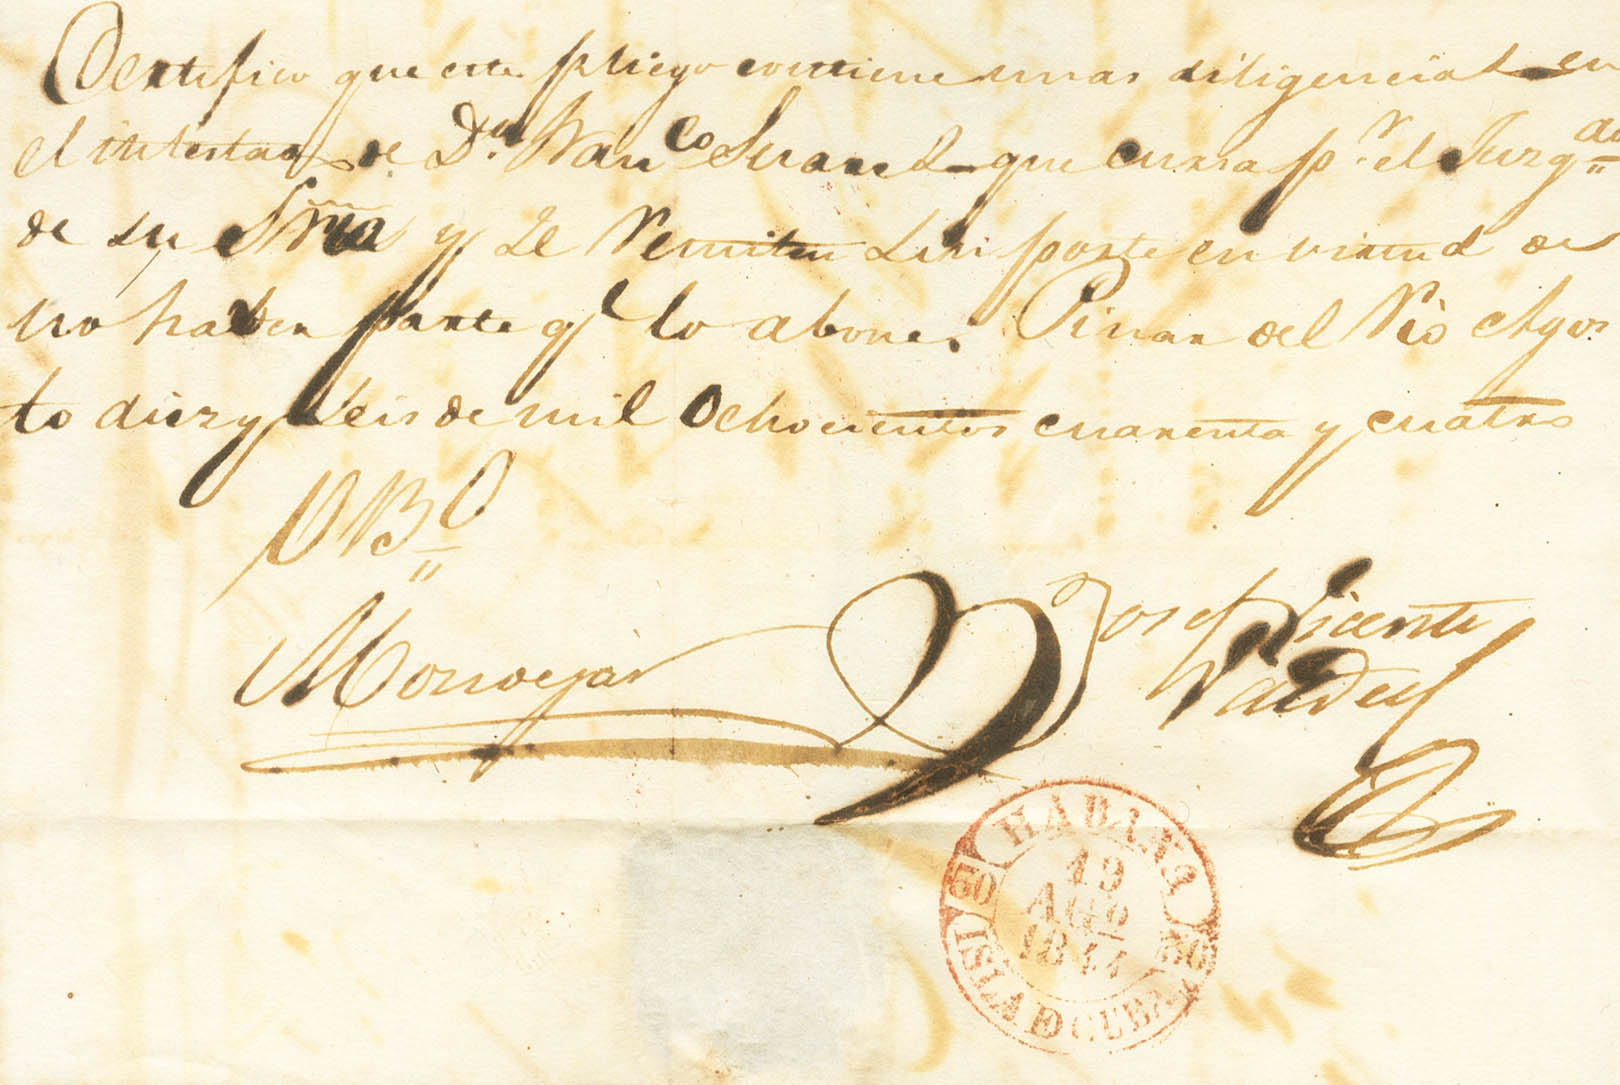 Certifico que este pliego contiene unas diligencias en
el intestado de Dn. Franco Suarez que cursa pr. el Juzgdo
de su Sria y se remiten sin porte en virtud de
no haber parte qe lo abone. Pinar del Rio Agos
to diez y seis de mil Ochocientos cuarenta y cuatro
VBO
Monvejar
Josef Vicente
Valdes
HABANA
50 50
19
AGO
1844
ISLA DE CUBA